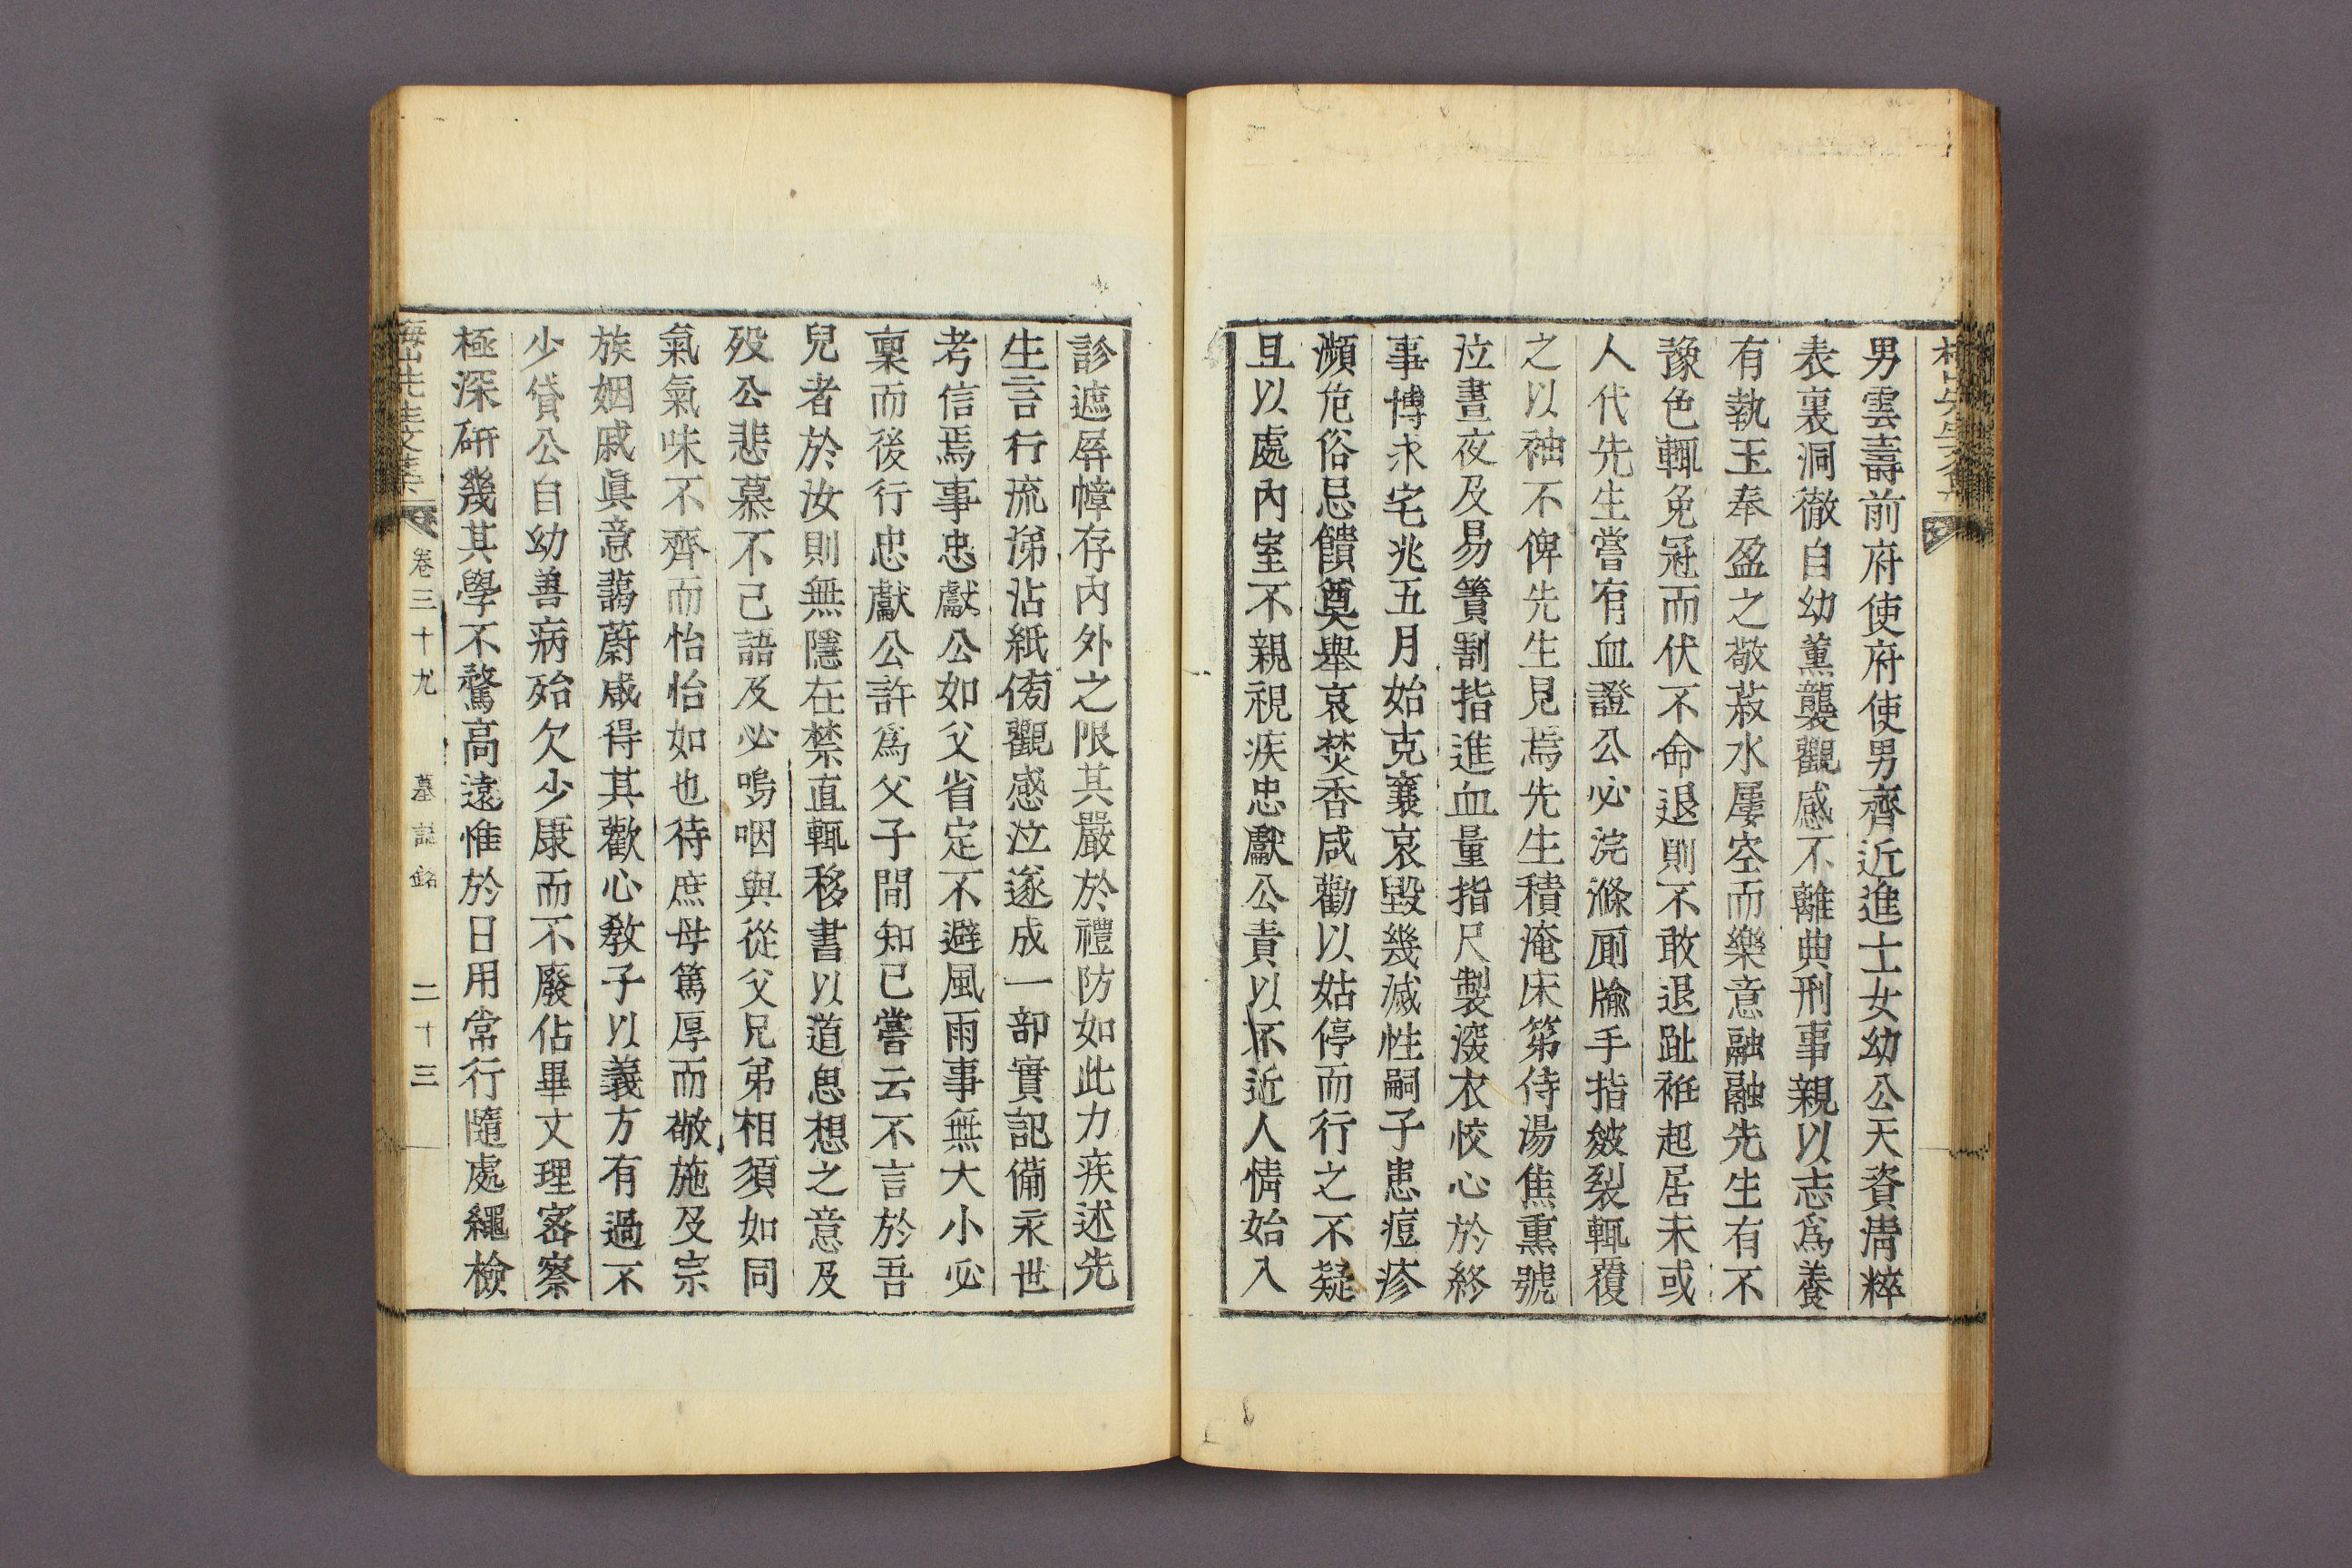 男雲壽前府使府使男齊近進士女幼公天資淸粹
表裏洞徹自幼薰襲觀感不離典刑事親以志爲養
有執玉奉盈之敬菽水屢空而樂意融融先生有不
豫色輒免冠而伏不命退則不敢退趾袵起居未或
人代先生嘗有血證公必浣滌厠牏手指皴裂輒覆
之以袖不俾先生見焉先生積淹床笫侍湯焦熏號
泣晝夜及易簀割指進血量指尺製深衣恔心於終
事博求宅兆五月始克襄哀哀毀幾滅性嗣子患痘疹
瀕危俗忌饋奠擧哀焚香咸勸以姑停而行之不疑
且以處內室不親視疾忠獻公責以不近人情始入
診遮屛幛存內外之限其嚴於禮防如此力疾述先
生言行流涕沾紙傍觀感泣遂成一部實記備永世
考信焉事忠獻公如父省定不避風雨事無大小必
稟而後行忠獻公許爲父子間知已嘗云不言於吾
兒者於汝則無隱在禁直輒移書以道思想之意及
歿公悲慕不已語及必嗚咽與從父兄弟相須如同
氣氣味不齊而怡怡如也待庶母篤厚而敬施及宗
族姻戚眞意藹蔚咸得其歡心敎子以義方有過不
少貸公自幼善病殆欠少康而不廢佔畢文理密察
極深硏幾其學不騖高遠惟於日用常行隨處繩檢
梅山先生文集 卷三十九 墓誌銘 二十三